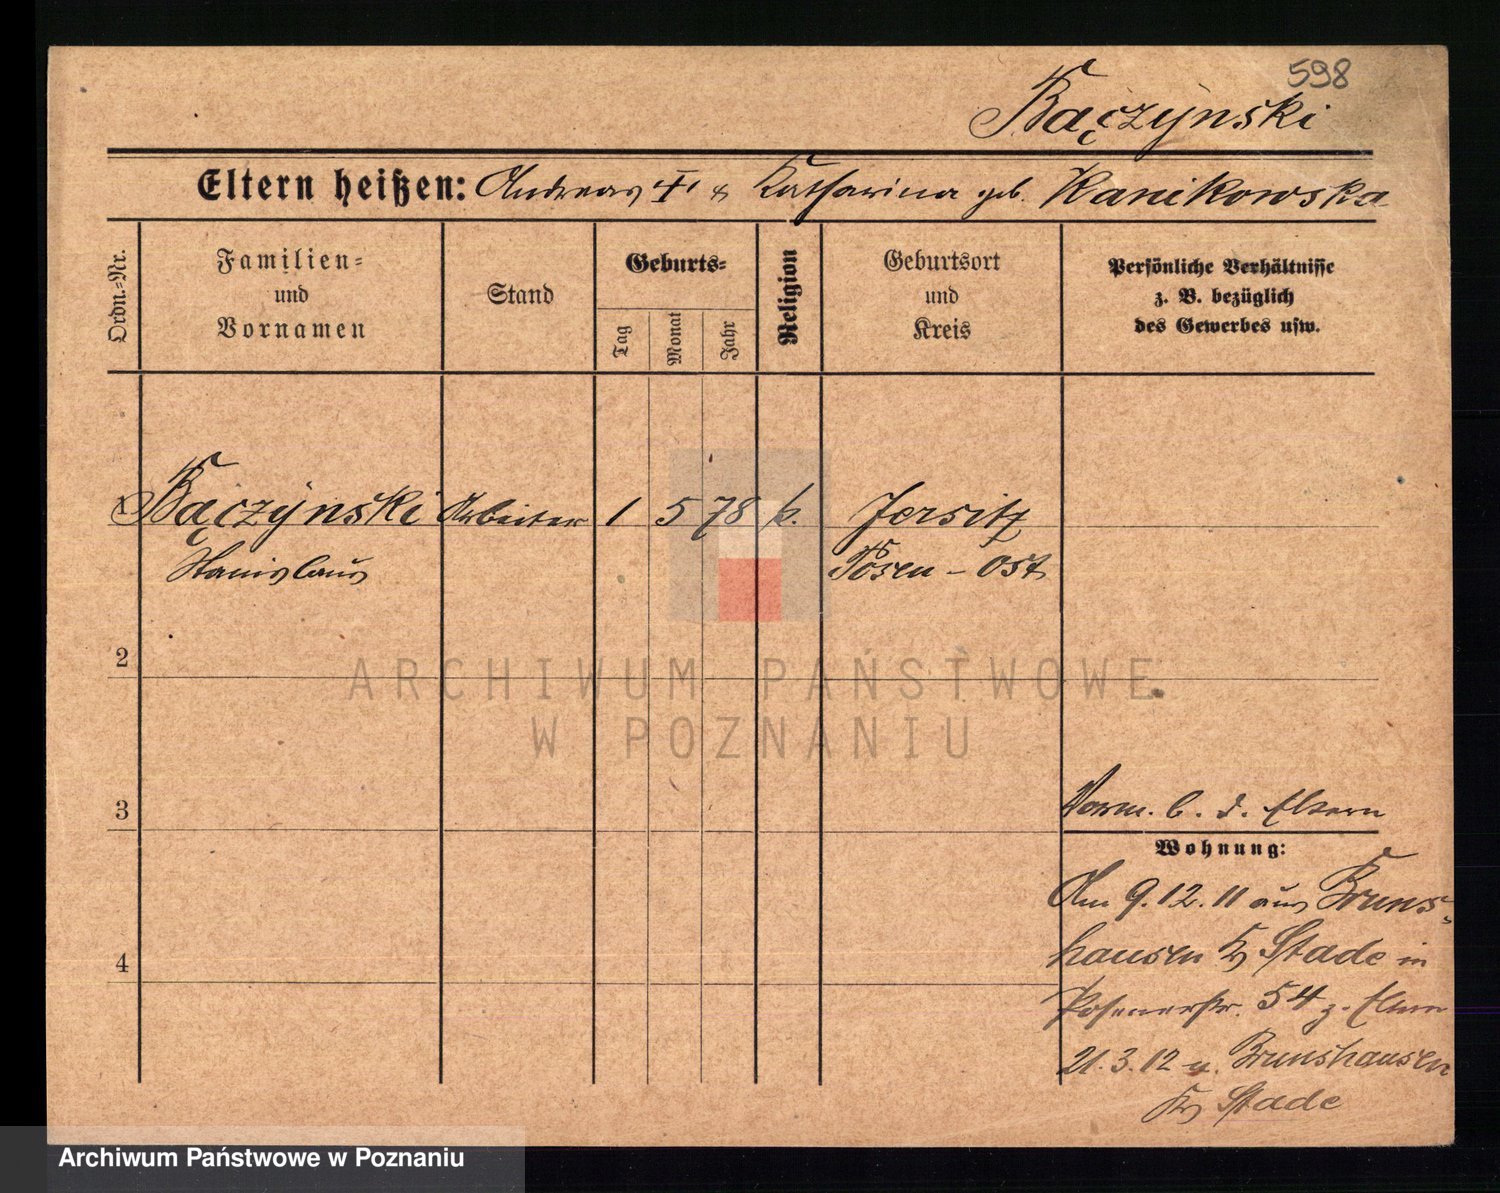 598
Bączyński
Eltern heißen: Andreas † & Katharina geb. Kanikowska
Ordn.-Nr.
Familien-
und
Vornamen
Stand
Geburts-
Tag
Monat
Jahr
Religion
Geburtsort
und
Kreis
Persönliche Verhältnisse
z. B. bezüglich
des Gewerbes usw.
1 Bączyński Arbeiter 1 5 78 k. Jersitz
Stanislaus Posen - Ost
2
3
4
Vorm. b. d. Eltern
Wohnung:
Am 9.12.11 aus Bruns-
hausen Kr Stade in
Posenerstr. 54 z. Eltern
21.3.12 n. Brunshausen
Kr Stade
ARCHIWUM PAŃSTWOWE
W POZNANIU
Archiwum Państwowe w Poznaniu